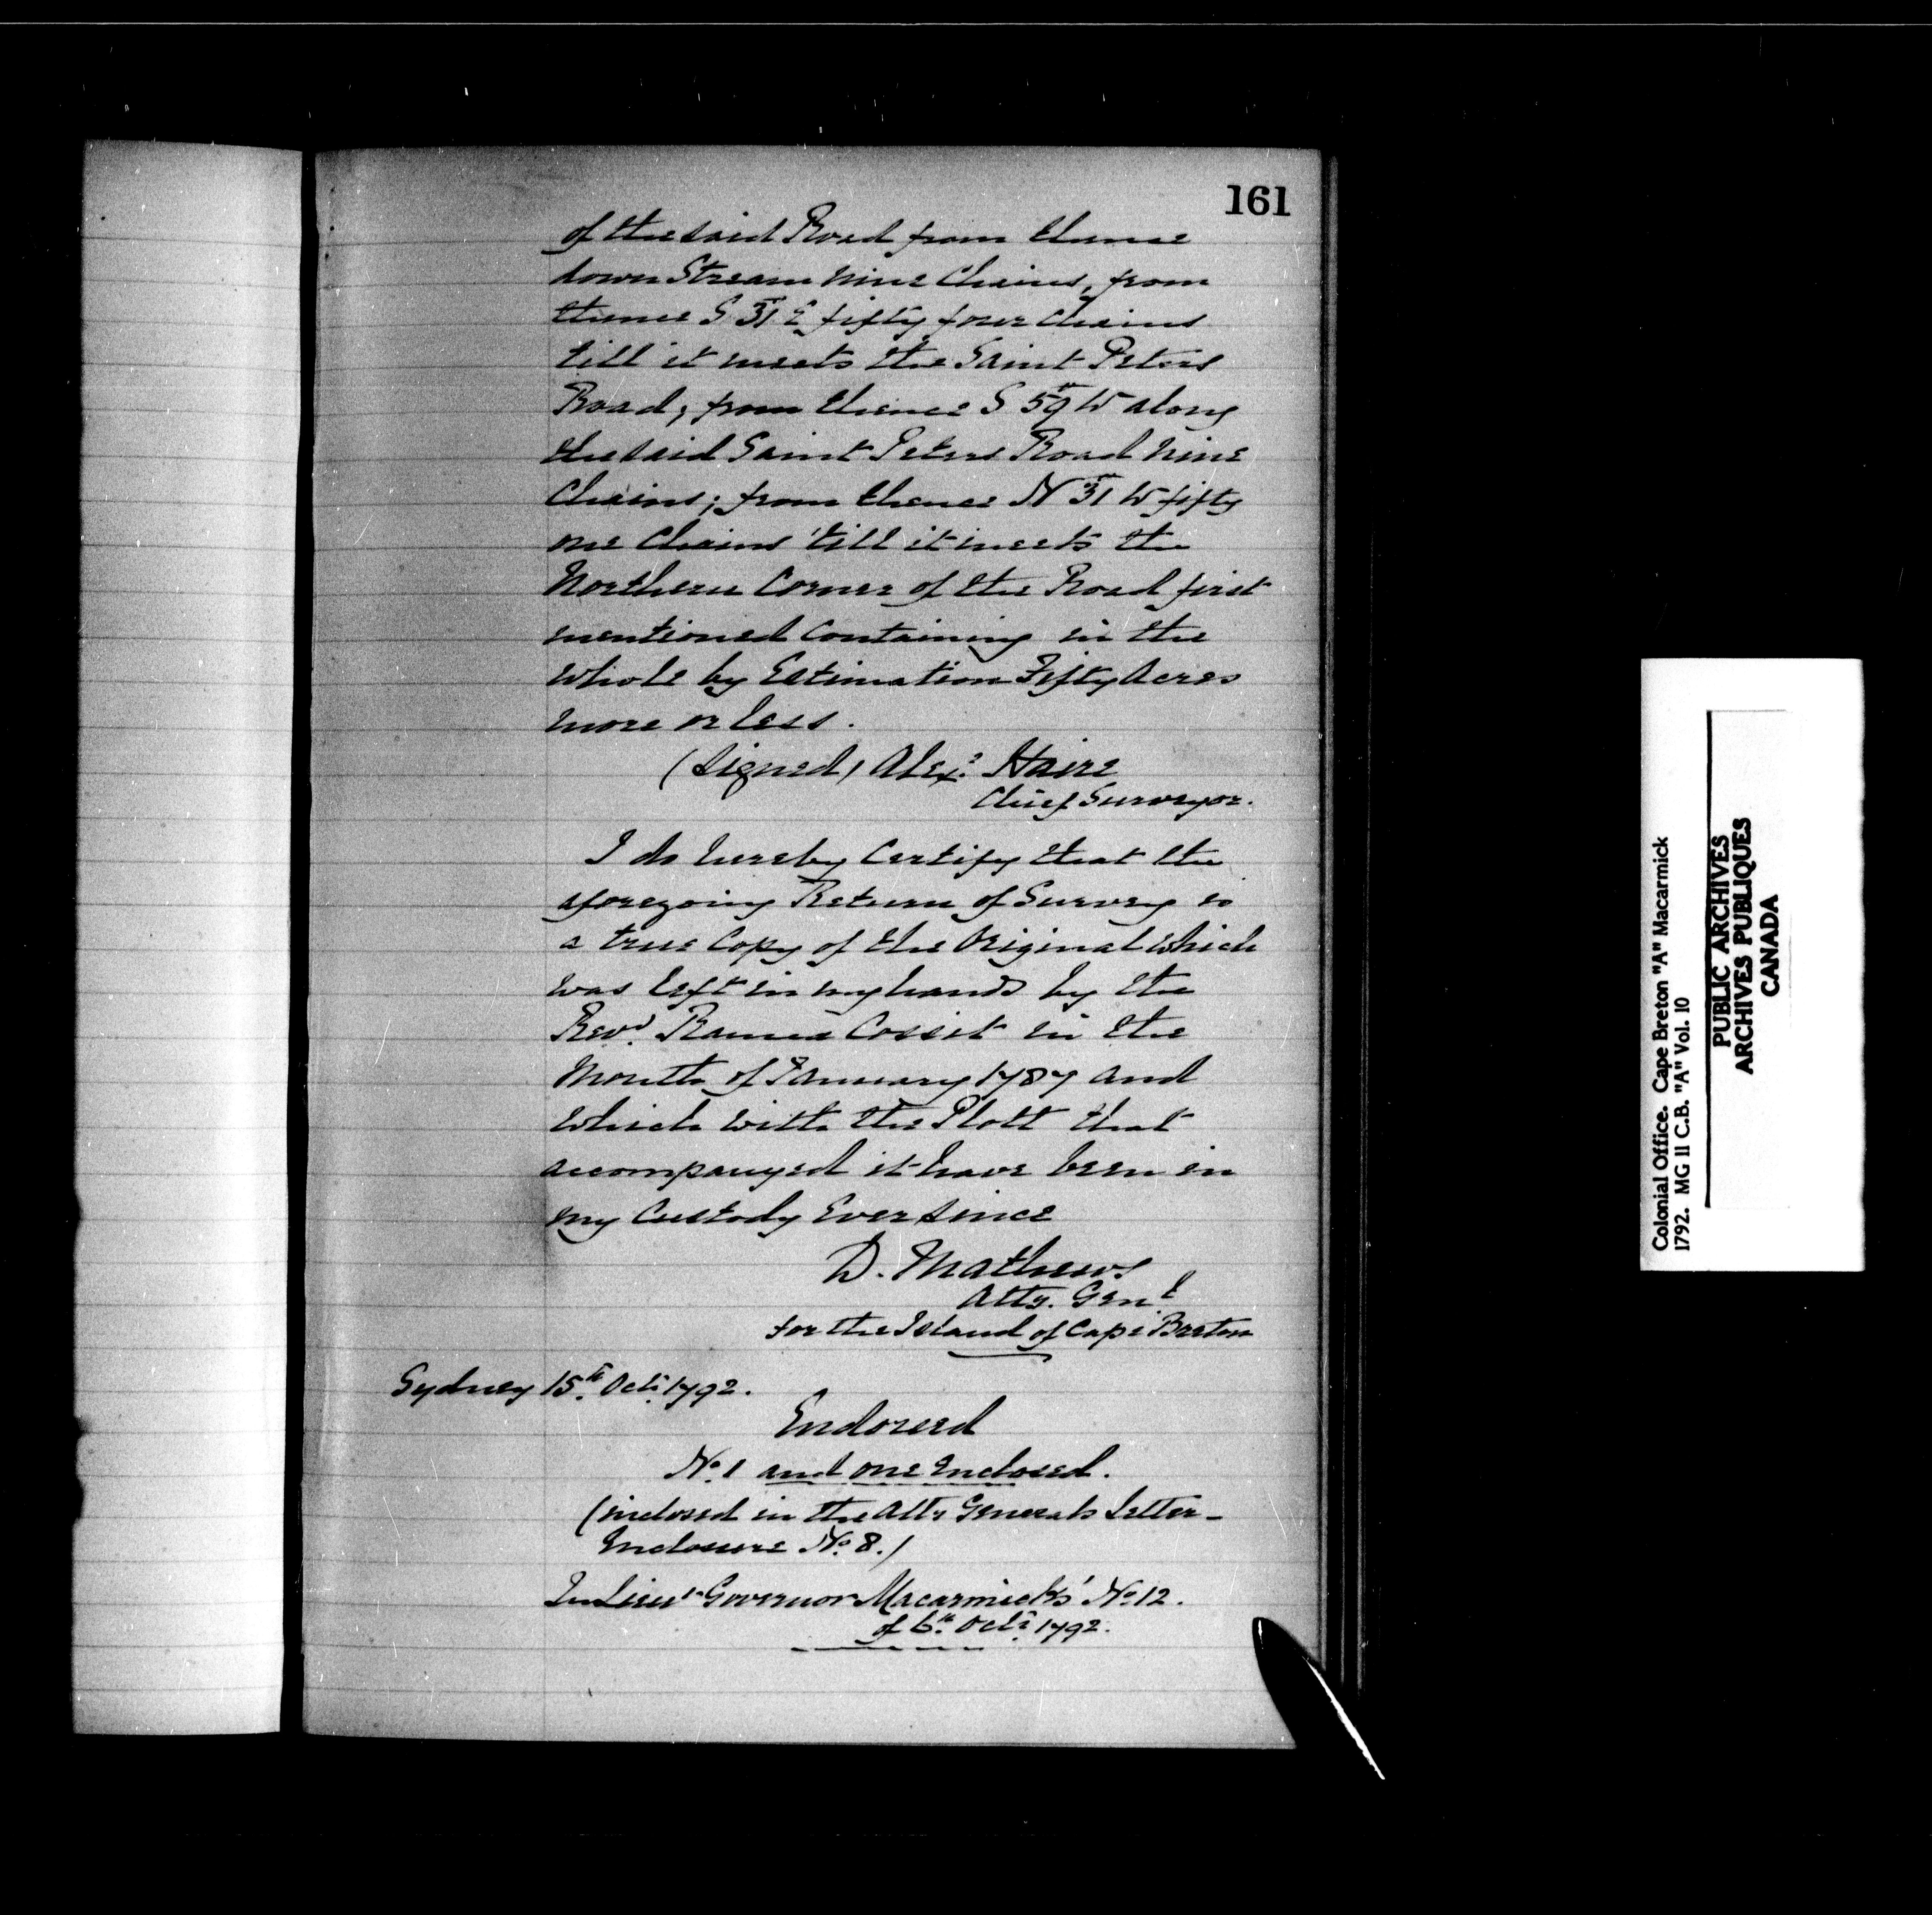 161
of the said Road from thence
down Stream nine Chains, from
thence S 31° E fifty four Chains
till it meets the Saint Peters
Road; from thence S 59° W along
the said Saint Peters Road nine
Chains; from thence N 31° W fifty
one Chains 'till it meets the
Northern Corner of the Road first
mentioned Containing in the
whole by Estimation Fifty Acres
more or less.
(Signed) Alexr. Haire
Chief Surveyor.
I do hereby Certify that the
aforegoing Return of Survey is
a true Copy of the Original which
was left in my hands by the
Revd. Ranna Cossit in the
Month of January 1787 and
which with the Plott that
accompanyed it have been in
my Custody Ever since
D. Mathews
Atty. Genl.
for the Island of Cape Breton
Sydney 15th Octr. 1792.
Endorsed
No. 1 and one Inclosed.
(inclosed in the Atty Generals Letter -
Inclosure No. 8.)
In Lieut Governor Macarmick's No. 12.
of 6th Octr. 1792.
Colonial Office. Cape Breton "A" Macarmick
1792. MG 11 C.B. "A" Vol. 10
PUBLIC ARCHIVES
ARCHIVES PUBLIQUES
CANADA